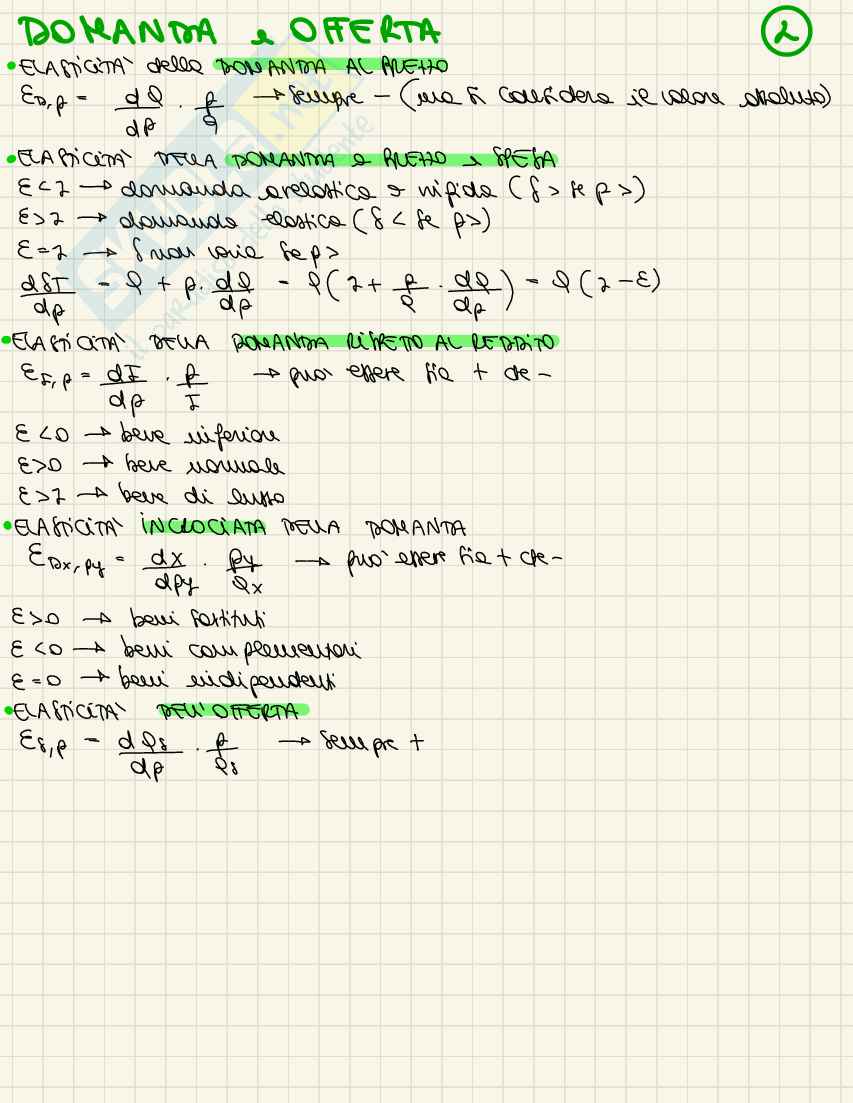 DOMANDA e OFFERTA
2
• ELASTICITA' della DOMANDA AL PREZZO
ED,p = dQ/dp · p/Q → sempre – (ma si considera il valore assoluto)
• ELASTICITA' DELLA DOMANDA e PREZZO e SPESA
ε<1 → domanda anelastica o rigida (S > se p >)
ε>1 → domanda elastica (S < se p >)
ε=1 → S non varia se p >
dST/dp = Q + p · dQ/dp = Q (1 + p/Q · dQ/dp) = Q (1 – ε)
• ELASTICITA' DELLA DOMANDA RISPETTO AL REDDITO
εI,p = dI/dp · p/I → può essere sia + che –
ε<0 → bene inferiore
ε>0 → bene normale
ε>1 → bene di lusso
• ELASTICITA' INCROCIATA DELLA DOMANDA
εDx,py = dx/dpy · py/Qx → può essere sia + che –
ε>0 → beni sostituti
ε<0 → beni complementari
ε=0 → beni indipendenti
• ELASTICITA' DELL'OFFERTA
εS,p = dQs/dp · p/Qs → sempre +